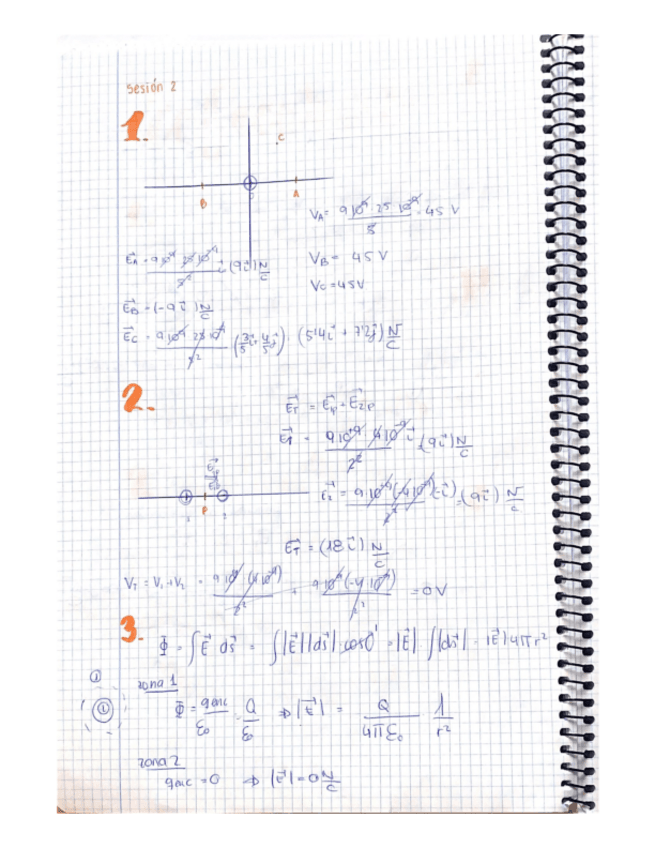 sesión 2
1.
C
B
A
V_A = 9 10^9 · 25 10^-9 / 5 = 45 V
V_B = 45 V
V_C = 45 V
E_A = 9 10^9 25 10^-9 / 5^2 i (9i) N/C
E_B = (-9i) N/C
E_C = 9 10^9 25 10^-9 / 5^2 (3/5 i + 4/5 j) = (5'4i + 7'2j) N/C
2.
E_T = E_1p + E_2p
E_1 = 9 10^9 4 10^-9 / 2^2 i (9i) N/C
P
E_2 = 9 10^9 (-4 10^-9) / 2^2 (-i) = (9i) N/C
E_T = (18i) N/C
V_T = V_1 + V_2 = 9 10^9 (4 10^-9) / 2^2 + 9 10^9 (-4 10^-9) / 2^2 = 0 V
3.
Φ = ∫ E ds = ∫ |E| |ds| cos0 = |E| ∫ |ds| = |E| 4π r^2
zona 1
Φ = q_enc / ε_0 = Q / ε_0 ⇒ |E| = Q / 4πε_0 · 1 / r^2
zona 2
q_enc = 0 ⇒ |E| = 0 N/C